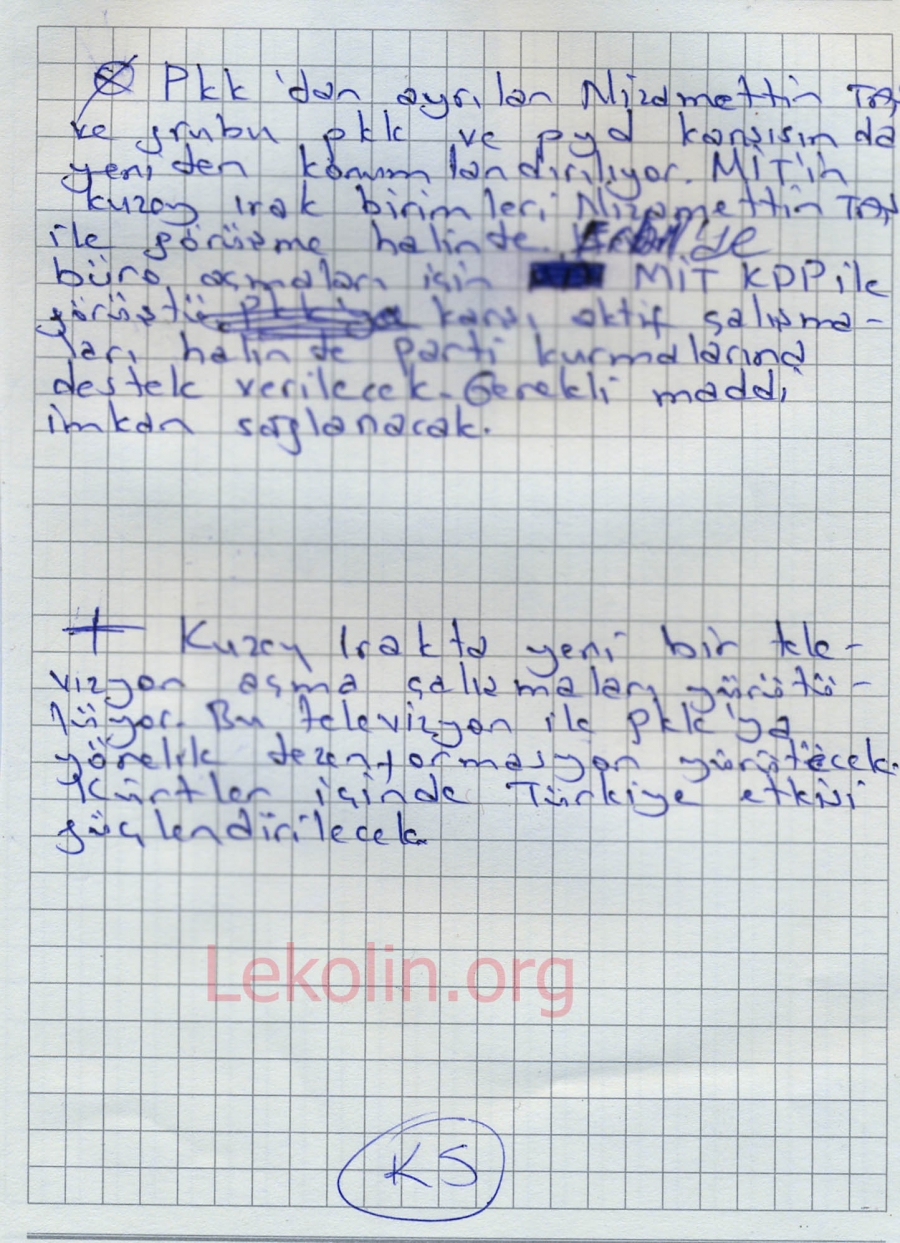 Pkk'dan ayrılan Nizamettin TAŞ
ve grubu pkk ve pyd karşısında
yeniden konumlandırılıyor. MİT'in
kuzey ırak birimleri Nizamettin TAŞ
ile görüşme halinde. Erbil'de
büro açmaları için MİT KDP ile
görüştü Pkk'ya karşı aktif çalışma-
ları halinde parti kurmalarına
destek verilecek. Gerekli maddi
imkan sağlanacak.
+ Kuzey Irakta yeni bir tele-
vizyon açma çalışmaları yürütü-
lüyor. Bu televizyon ile pkk'ya
yönelik dezenformasyon yürütecek.
Kürtler içinde Türkiye etkisi
güçlendirilecek.
Lekolin.org
KS